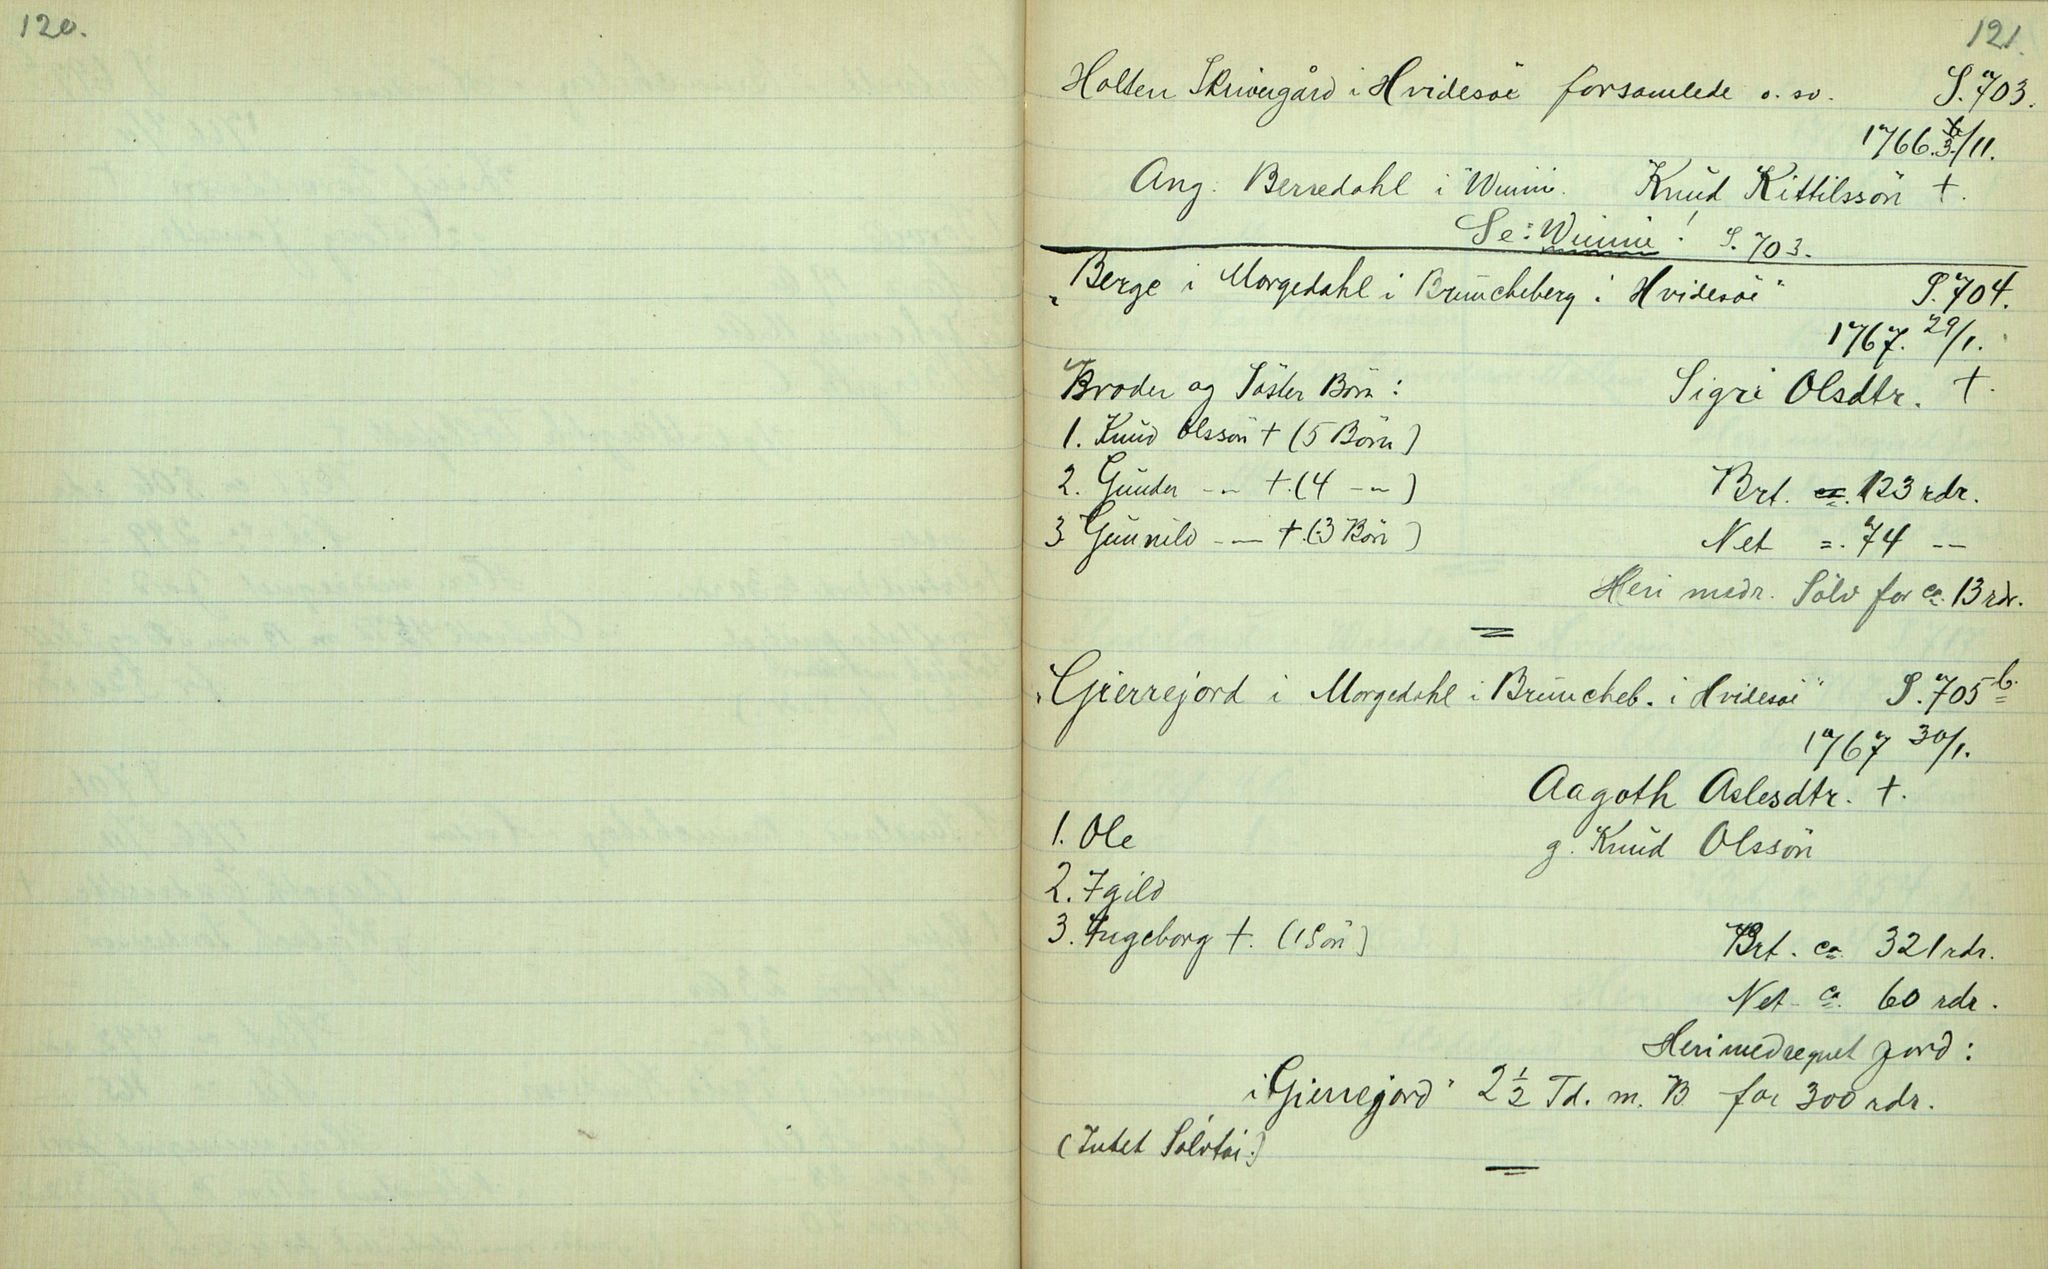 120.
121.
Holten Skrivergård i Hvidesöe forsamlede o. sv. S. 703.
1766. 3/11.
Ang. Berredahl i Winie. Knud Kittilssön †.
Se: Winie! S. 703.
"Berge i Morgedahl i Bruncheberg i Hvidesöe" S. 704.
1767. 29/1.
Broder og Söster Börn: Sigri Olsdtr. †.
1. Knud Olssön † (5 Börn)
2. Gunder -"- †. (4 -"-) Brt. ca. 123 rdr.
3. Gunnild -"- †. (3 Börn) Net =. 74 -"-
Heri medr. Sölv for ca. 13 rdr.
"Gierrejord i Morgedahl i Bruncheb. i Hvidesöe" S. 705 b.
1767 30/1.
Aagoth Aslesdtr. †.
1. Ole g. Knud Olssön
2. Igild
3. Ingeborg †. (1 Sön) Brt. ca. 321 rdr.
Net ca. 60 rdr.
Heri medregnet jord:
i "Gierrejord" 2 1/2 Td. m. B. for 300 rdr.
(Intet Sölvtöi.)